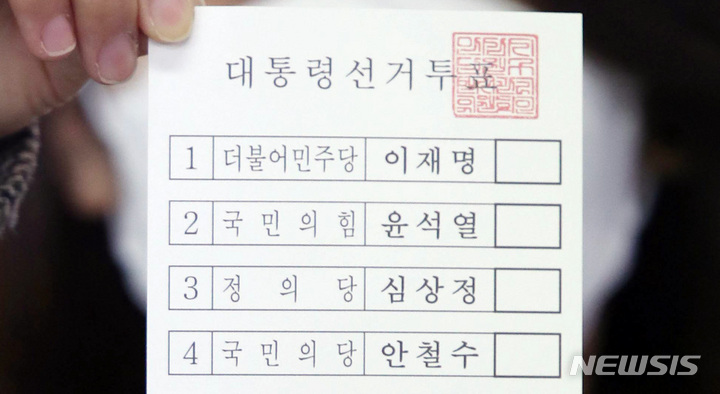 대통령선거투표
1 더불어민주당 이재명
2 국민의힘 윤석열
3 정의당 심상정
4 국민의당 안철수
NEWSIS